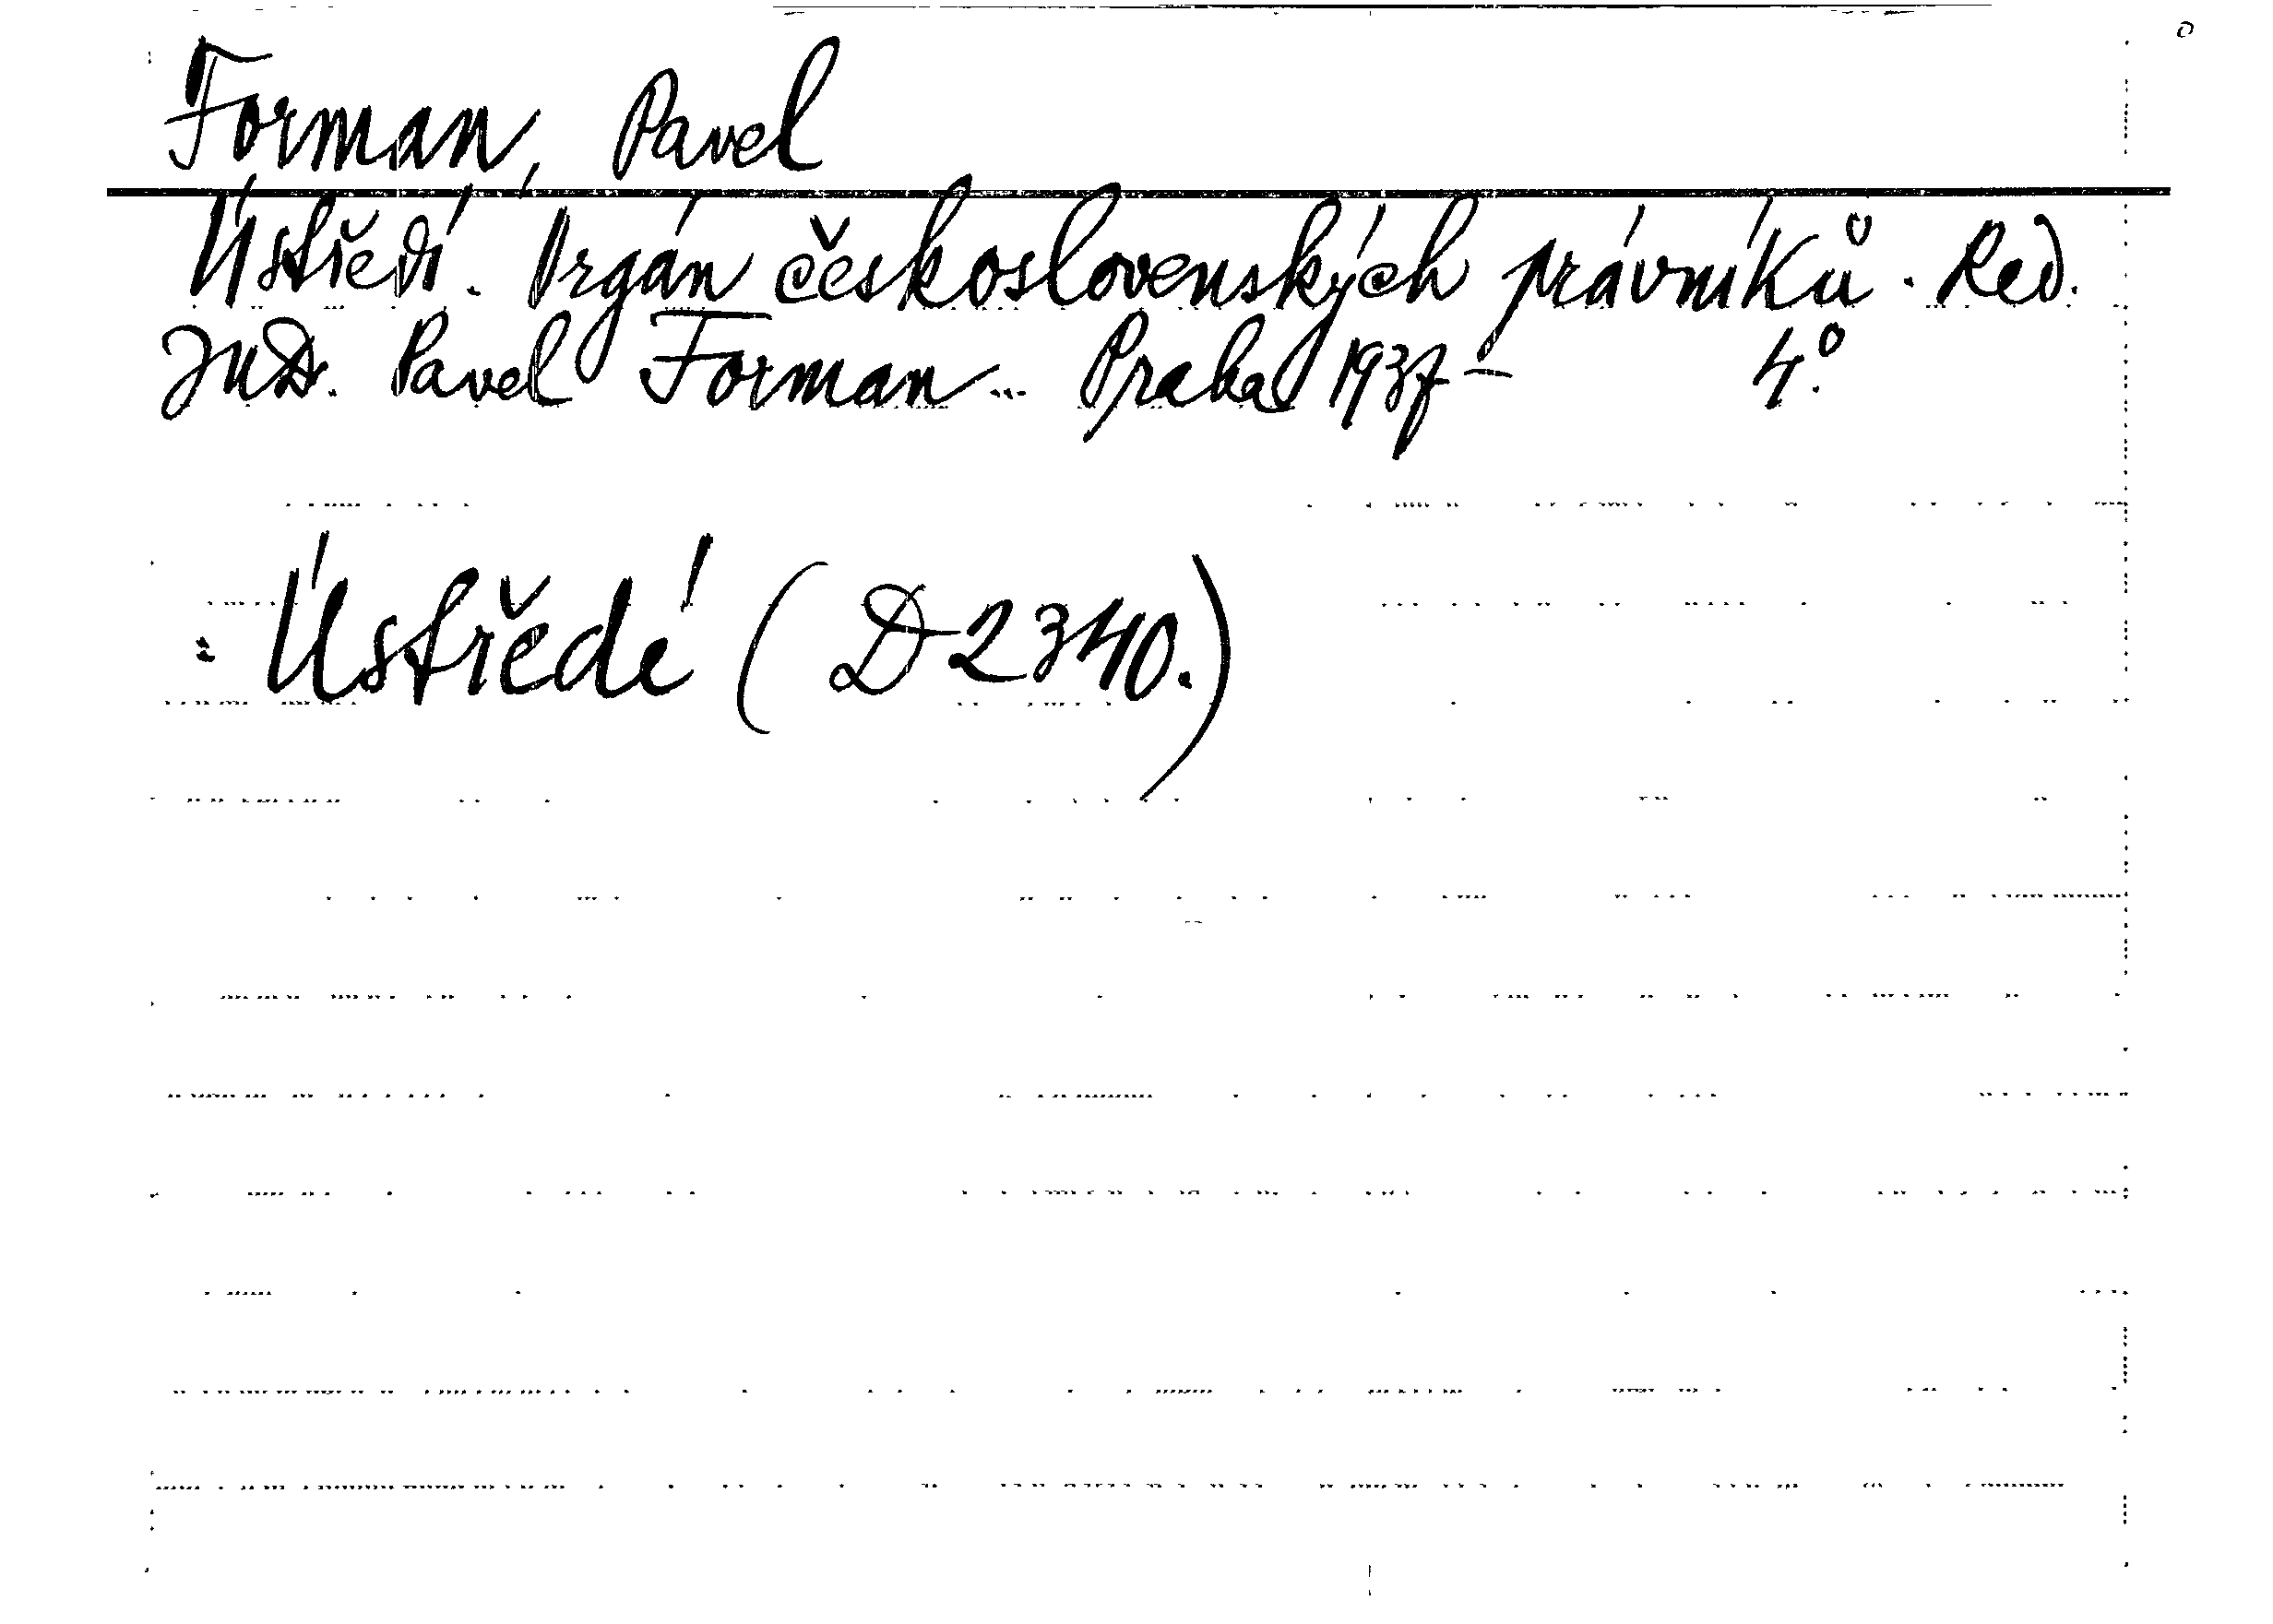 Forman, Pavel
Ústředí. Orgán československých právníků. Red.
JUDr. Pavel Forman... Praha 1937- 4°.
: Ústředí (D 2340.)